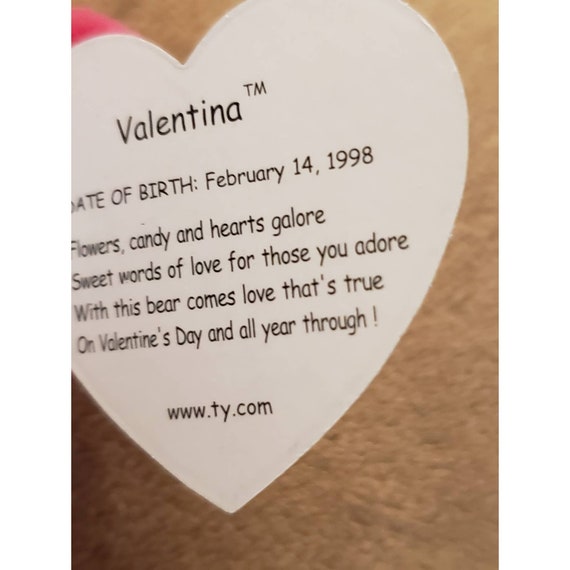 Valentina™
DATE OF BIRTH: February 14, 1998
Flowers, candy and hearts galore
Sweet words of love for those you adore
With this bear comes love that's true
On Valentine's Day and all year through !
www.ty.com